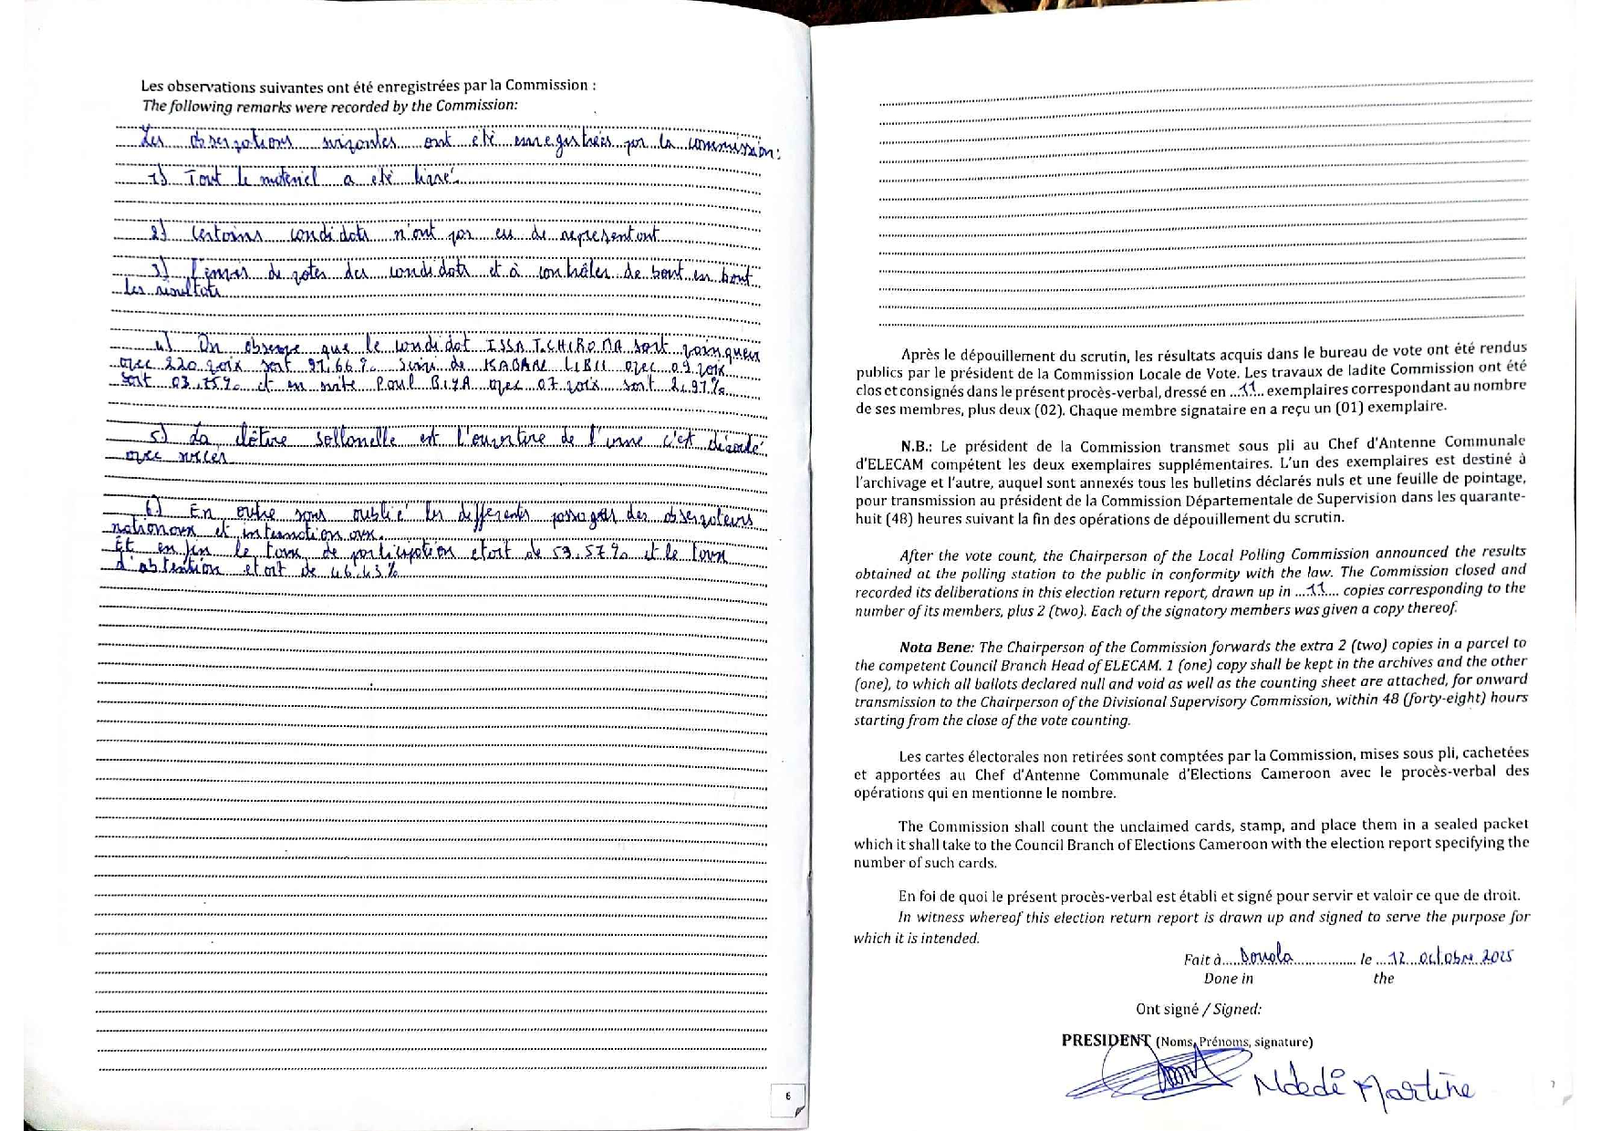 Les observations suivantes ont été enregistrées par la Commission :
The following remarks were recorded by the Commission:
Les observations suivantes ont été enregistrées par la commission:
1) Tout le materiel a été livré
2) Certains candidats n'ont pas eu de representant
les résultats
4) On observe que le candidat ISSA TCHIROMA sort vainqueur
avec 220 voix soit 91.66% suivi de KABARL LIBII avec 09 voix
soit 03.75% et en suite Paul BIYA avec 07 voix soit 2.91%
5) La clôture est l'ouverture de l'urne c'est déroulé
avec succes
6) En outre sans oublié les differents passages des observateurs
nationaux et internationaux.
Et en fin le taux de participation etait de 53.57% et le taux
d'abstention etait de 46.43%
6
Après le dépouillement du scrutin, les résultats acquis dans le bureau de vote ont été rendus
publics par le président de la Commission Locale de Vote. Les travaux de ladite Commission ont été
clos et consignés dans le présent procès-verbal, dressé en ...11... exemplaires correspondant au nombre
de ses membres, plus deux (02). Chaque membre signataire en a reçu un (01) exemplaire.
N.B.: Le président de la Commission transmet sous pli au Chef d'Antenne Communale
d'ELECAM compétent les deux exemplaires supplémentaires. L'un des exemplaires est destiné à
l'archivage et l'autre, auquel sont annexés tous les bulletins déclarés nuls et une feuille de pointage,
pour transmission au président de la Commission Départementale de Supervision dans les quarante-
huit (48) heures suivant la fin des opérations de dépouillement du scrutin.
After the vote count, the Chairperson of the Local Polling Commission announced the results
obtained at the polling station to the public in conformity with the law. The Commission closed and
recorded its deliberations in this election return report, drawn up in ...11... copies corresponding to the
number of its members, plus 2 (two). Each of the signatory members was given a copy thereof.
Nota Bene: The Chairperson of the Commission forwards the extra 2 (two) copies in a parcel to
the competent Council Branch Head of ELECAM. 1 (one) copy shall be kept in the archives and the other
(one), to which all ballots declared null and void as well as the counting sheet are attached, for onward
transmission to the Chairperson of the Divisional Supervisory Commission, within 48 (forty-eight) hours
starting from the close of the vote counting.
Les cartes électorales non retirées sont comptées par la Commission, mises sous pli, cachetées
et apportées au Chef d'Antenne Communale d'Elections Cameroon avec le procès-verbal des
opérations qui en mentionne le nombre.
The Commission shall count the unclaimed cards, stamp, and place them in a sealed packet
which it shall take to the Council Branch of Elections Cameroon with the election report specifying the
number of such cards.
En foi de quoi le présent procès-verbal est établi et signé pour servir et valoir ce que de droit.
In witness whereof this election return report is drawn up and signed to serve the purpose for
which it is intended.
Fait à.....Douala............... le ...12 octobre 2025
Done in the
Ont signé / Signed:
PRESIDENT (Noms, Prénoms, signature)
Ndedi Martine